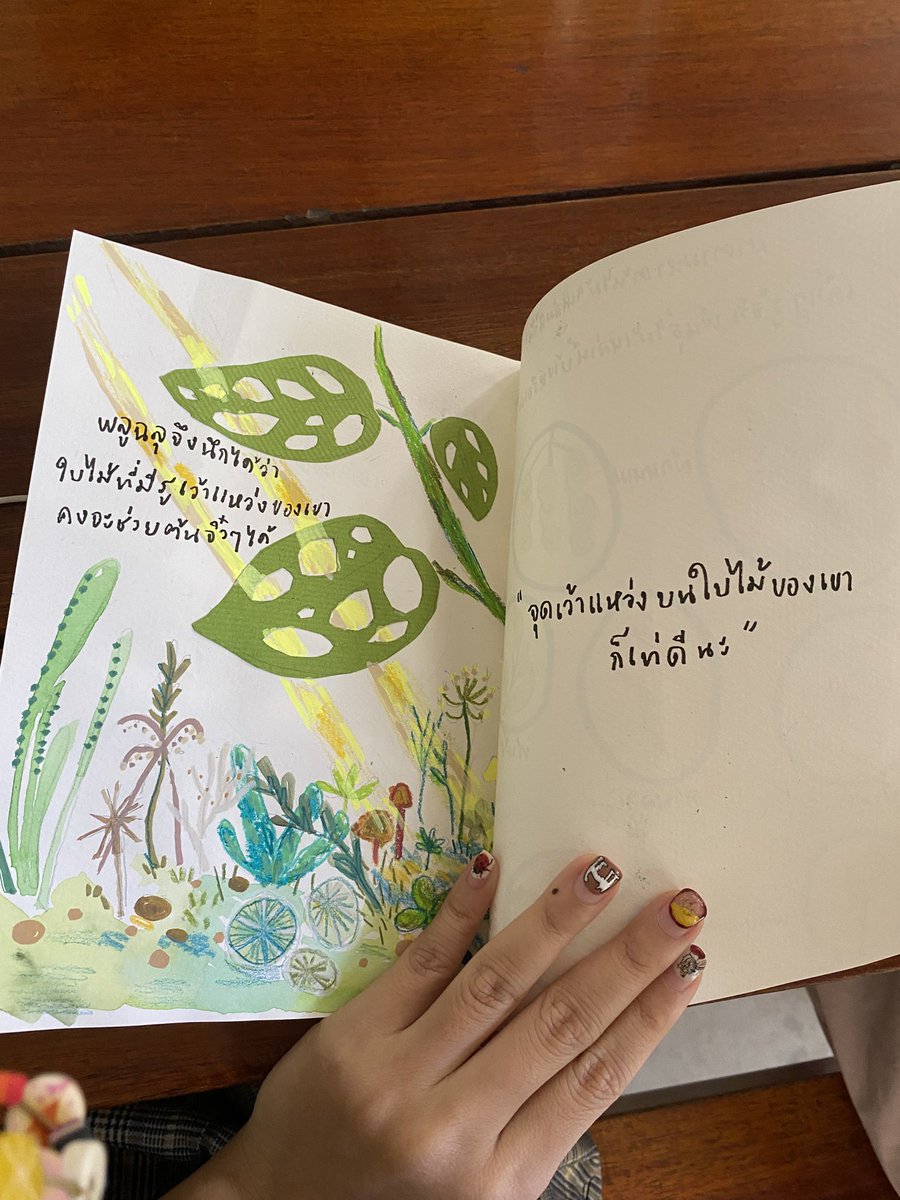 พลูฉลุจึงนึกได้ว่า
ใบไม้ที่มีรูเว้าแหว่งของเขา
คงจะช่วยต้นจิ๋วๆได้
"จุดเว้าแหว่งบนใบไม้ของเขา
ก็เท่ดีนะ"